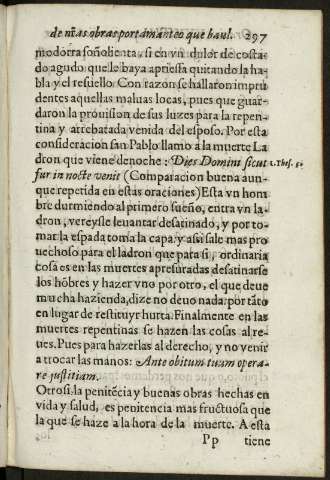 de nr̃as obras por tam̃anteo que baul. 297
modorra soñolienta, si en vn dolor de costa-
do agudo que le baya apriesta quitando la ha-
bla y el resuello. Con razon se hallaron impru
dentes aquellas maluas locas, pues que guar-
daron la prouision de sus luzes para la repen-
tina y arrebatada venida del esposo. Por esta
consideracion san Pablo llamo à la muerte La
dron que viene denoche: Dies Domini sicut 1. Thes. 5.
fur in nocte venit (Comparacion buena aun-
que repetida en estas oraciones) Esta vn hom
bre durmiendo al primero sueño, entra vn la-
dron, vereysle leuantar desatinado, y por to-
mar la espada toma la capa: y assi sale mas pro
uechoso para el ladron que para si, ordinaria
cosa es en las muertes apresuradas desatinarse
los hõbres y hazer vno por otro, el que deue
mucha hazienda, dize no deuo nada: por tãto
en lugar de restituyr hurta. Finalmente en las
muertes repentinas se hazen las cosas al re-
ues. Pues para hazerlas al derecho, y no venir
a trocar las manos: Ante obitum tuam opera-
re justitiam.
Otrosi la penitẽcia y buenas obras hechas en
vida y salud, es penitencia mas fructuosa que
la que se haze a la hora de la muerte. A esta
Pp tiene